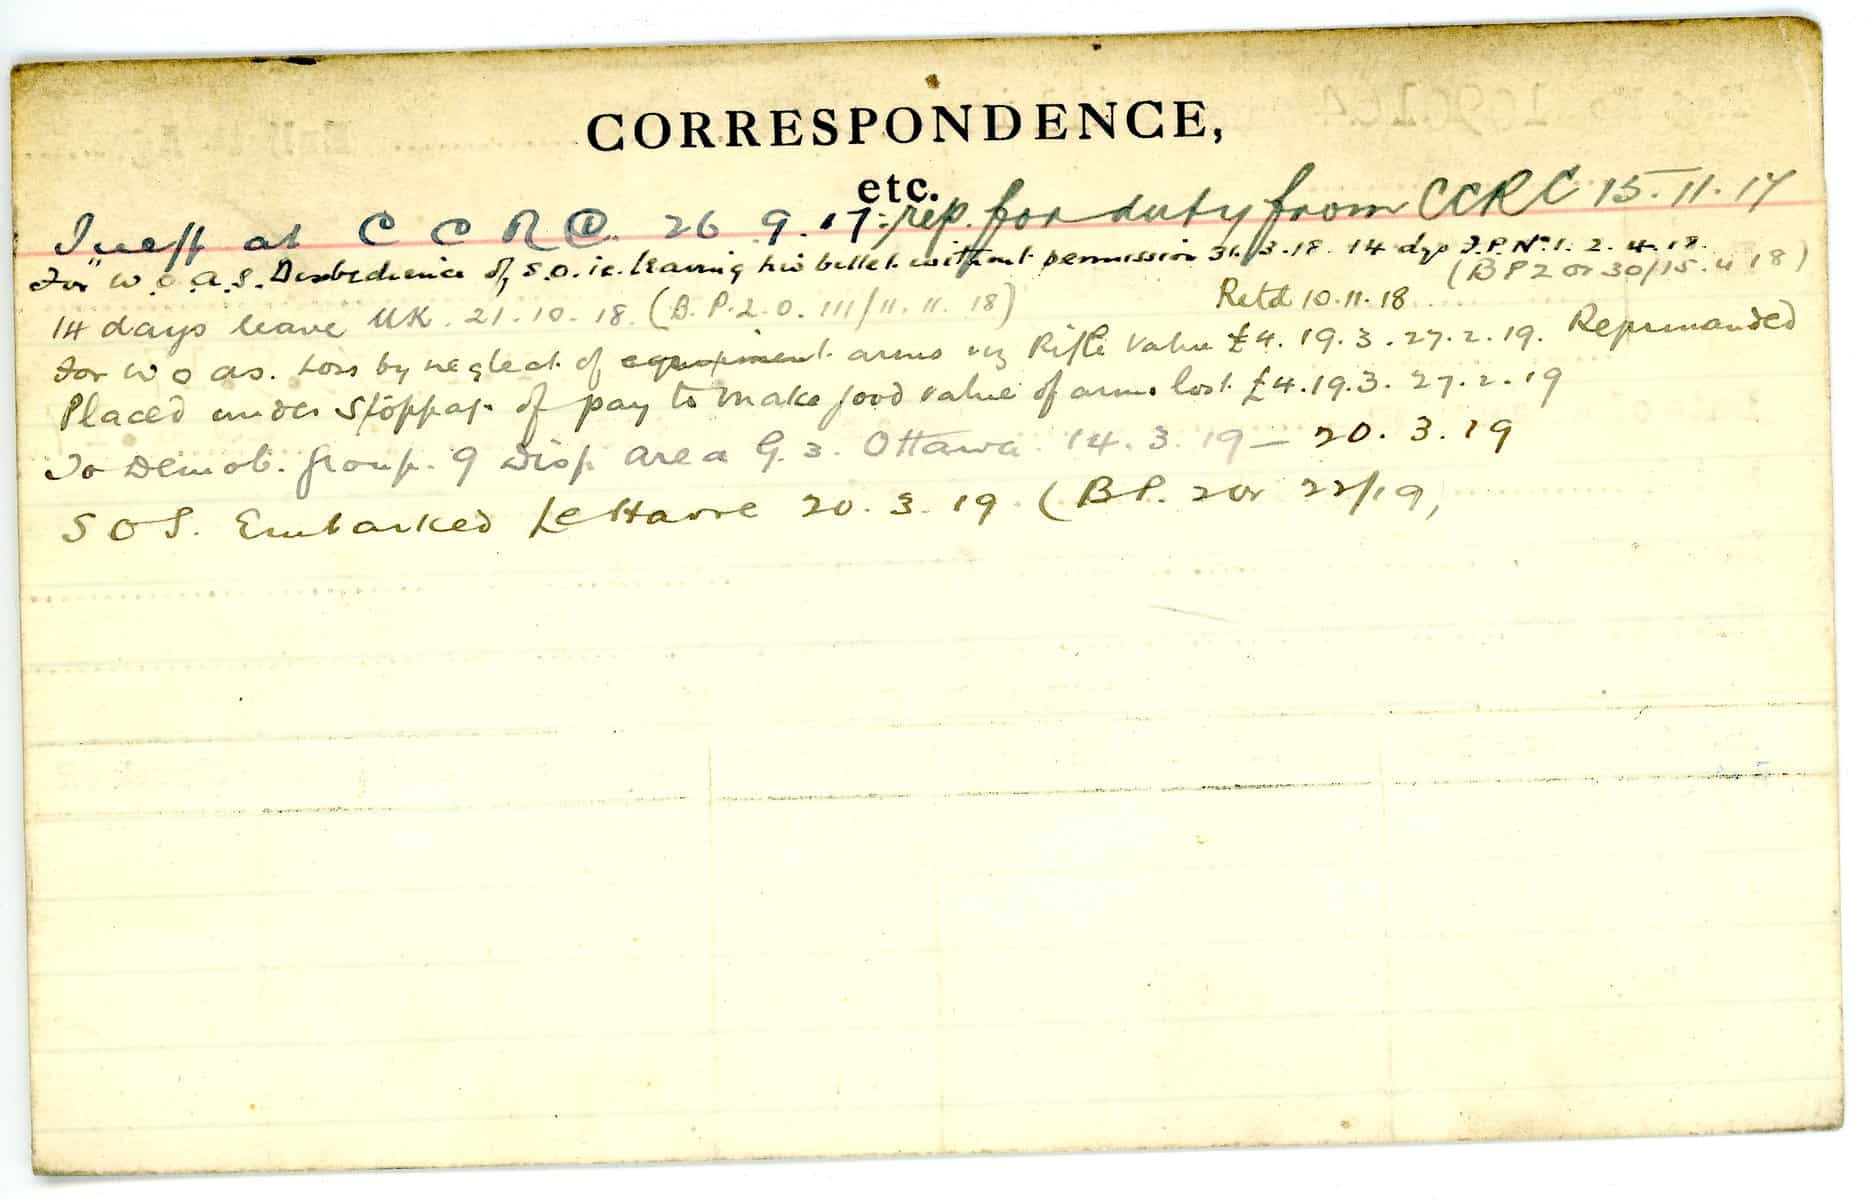 CORRESPONDENCE,
etc.
Ineff at C C R C. 26.9.17: rep. for duty from CCRC 15.11.17
For W.O.A.S. Disobedience of S.O. i.e. leaving his billet without permission 31.3.18. 14 dys F.P. No. 1. 2.4.18.
(BP2 Or 30/15.4.18)
14 days leave UK. 21.10.18. (B.P.2.O. 111/11.11.18) Retd 10.11.18
For W O AS. Loss by neglect of equipment arms viz Rifle value £4.19.3. 27.2.19. Reprimanded
Placed under stoppage of pay to make good value of arms lost £4.19.3. 27.2.19
To Demob. Group. 9 Disp. area G. 3. Ottawa. 14.3.19 — 20.3.19
SOS. Embarked Le Havre 20.3.19 (BP. 2 Or 22/19)